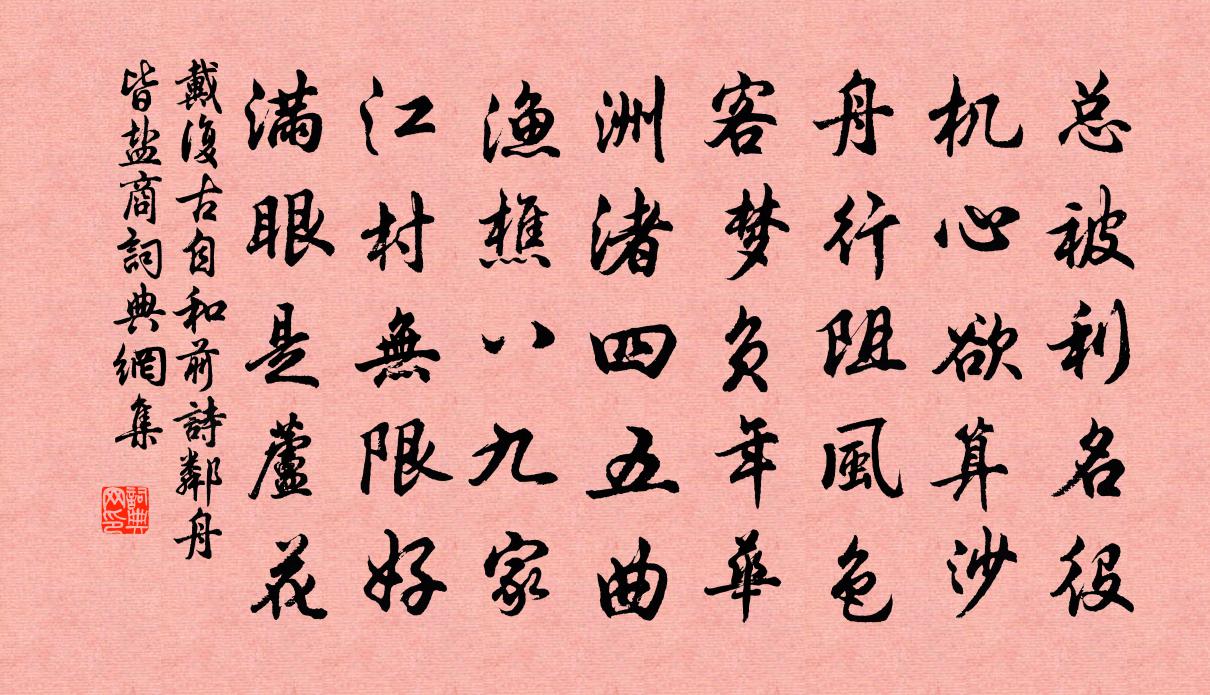 总被利名役
机心欲算沙
舟行阻風色
客梦负年华
洲渚四五曲
渔樵八九家
江村無限好
满眼是蘆花
戴復古自和前詩鄰舟
皆盐商詞典網集
詞典网印